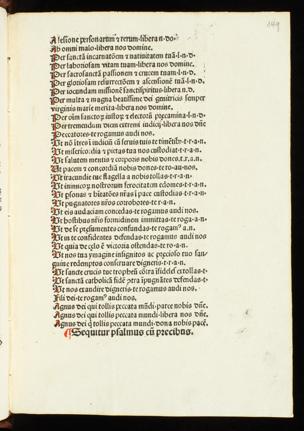 149
A lesione personarum & rerum-libera n-do-
Ab omni malo-libera nos domine.
Per sanctã incarnatõem & natiuitatem tuã-l-n-d-
Per laboriosam vitam tuam-libera nos domine.
Per sacrosanctã passionem & crucem tuam-l-n-d-
Per gloriosam resurrectõem & ascensionẽ tuã-l-n-d-
Per iocundam missionẽ sanctispiritus-libera n.d.
Per multa & magna beatissime dei genitricis semper
virginis marie merita-libera nos domine.
Per oĩm sanctoꝝ iustoꝝ & electoꝝ p̃camina-l-n-d-
Per tremendum diem extremi iudicij-libera nos dñe
Peccatores-te rogamus audi nos.
Ut
Ut misericordia & pietas tua nos custodiat-t-r-a-n-
Ut salutem mentis & corporis nobis dones.t.r.a.n.
Ut pacem & concordiã nobis dones-te-ro-au-nos.
Ut iracundie tue flagella a nobis tollas-t-r-a-n-
Ut inimicoꝝ nostrorum ferocitatem edomes-t-r-a-n-
Ut
Ut pugnatores nr̃os corrobores-te-r-a-n-
Ut eis audaciam concedas-te rogamus audi nos.
Ut hostibus nr̃is formidinem immittas-te roga-a-n-
Ut de se presumentes confundas-te rogamꝰ a.n.
Ut in te confidentes defendas-te rogamus audi nos
Ut
Ut nos tua ymagine insignitos ac precioso tuo san-
guine redemptos conseruare digneris-t-r-a-n-
Ut sancte crucis tue tropheũ cõtra ĩfideles extollas-t-
Ut sanctã catholicã fidẽ cõtra ĩpugnãtes defendas-t-
Ut nos exaudire digneris-te rogamus audi nos.
Fili dei-te rogamꝰ audi nos.
Agnus dei qui tollis peccata mũdi-parce nobis dñe.
Agnus dei qui tollis peccata mundi-libera nos dñe.
Agnus dei q̃ tollis peccata mundi-dona nobis pacẽ.
¶Sequitur psalmus cũ precibus.